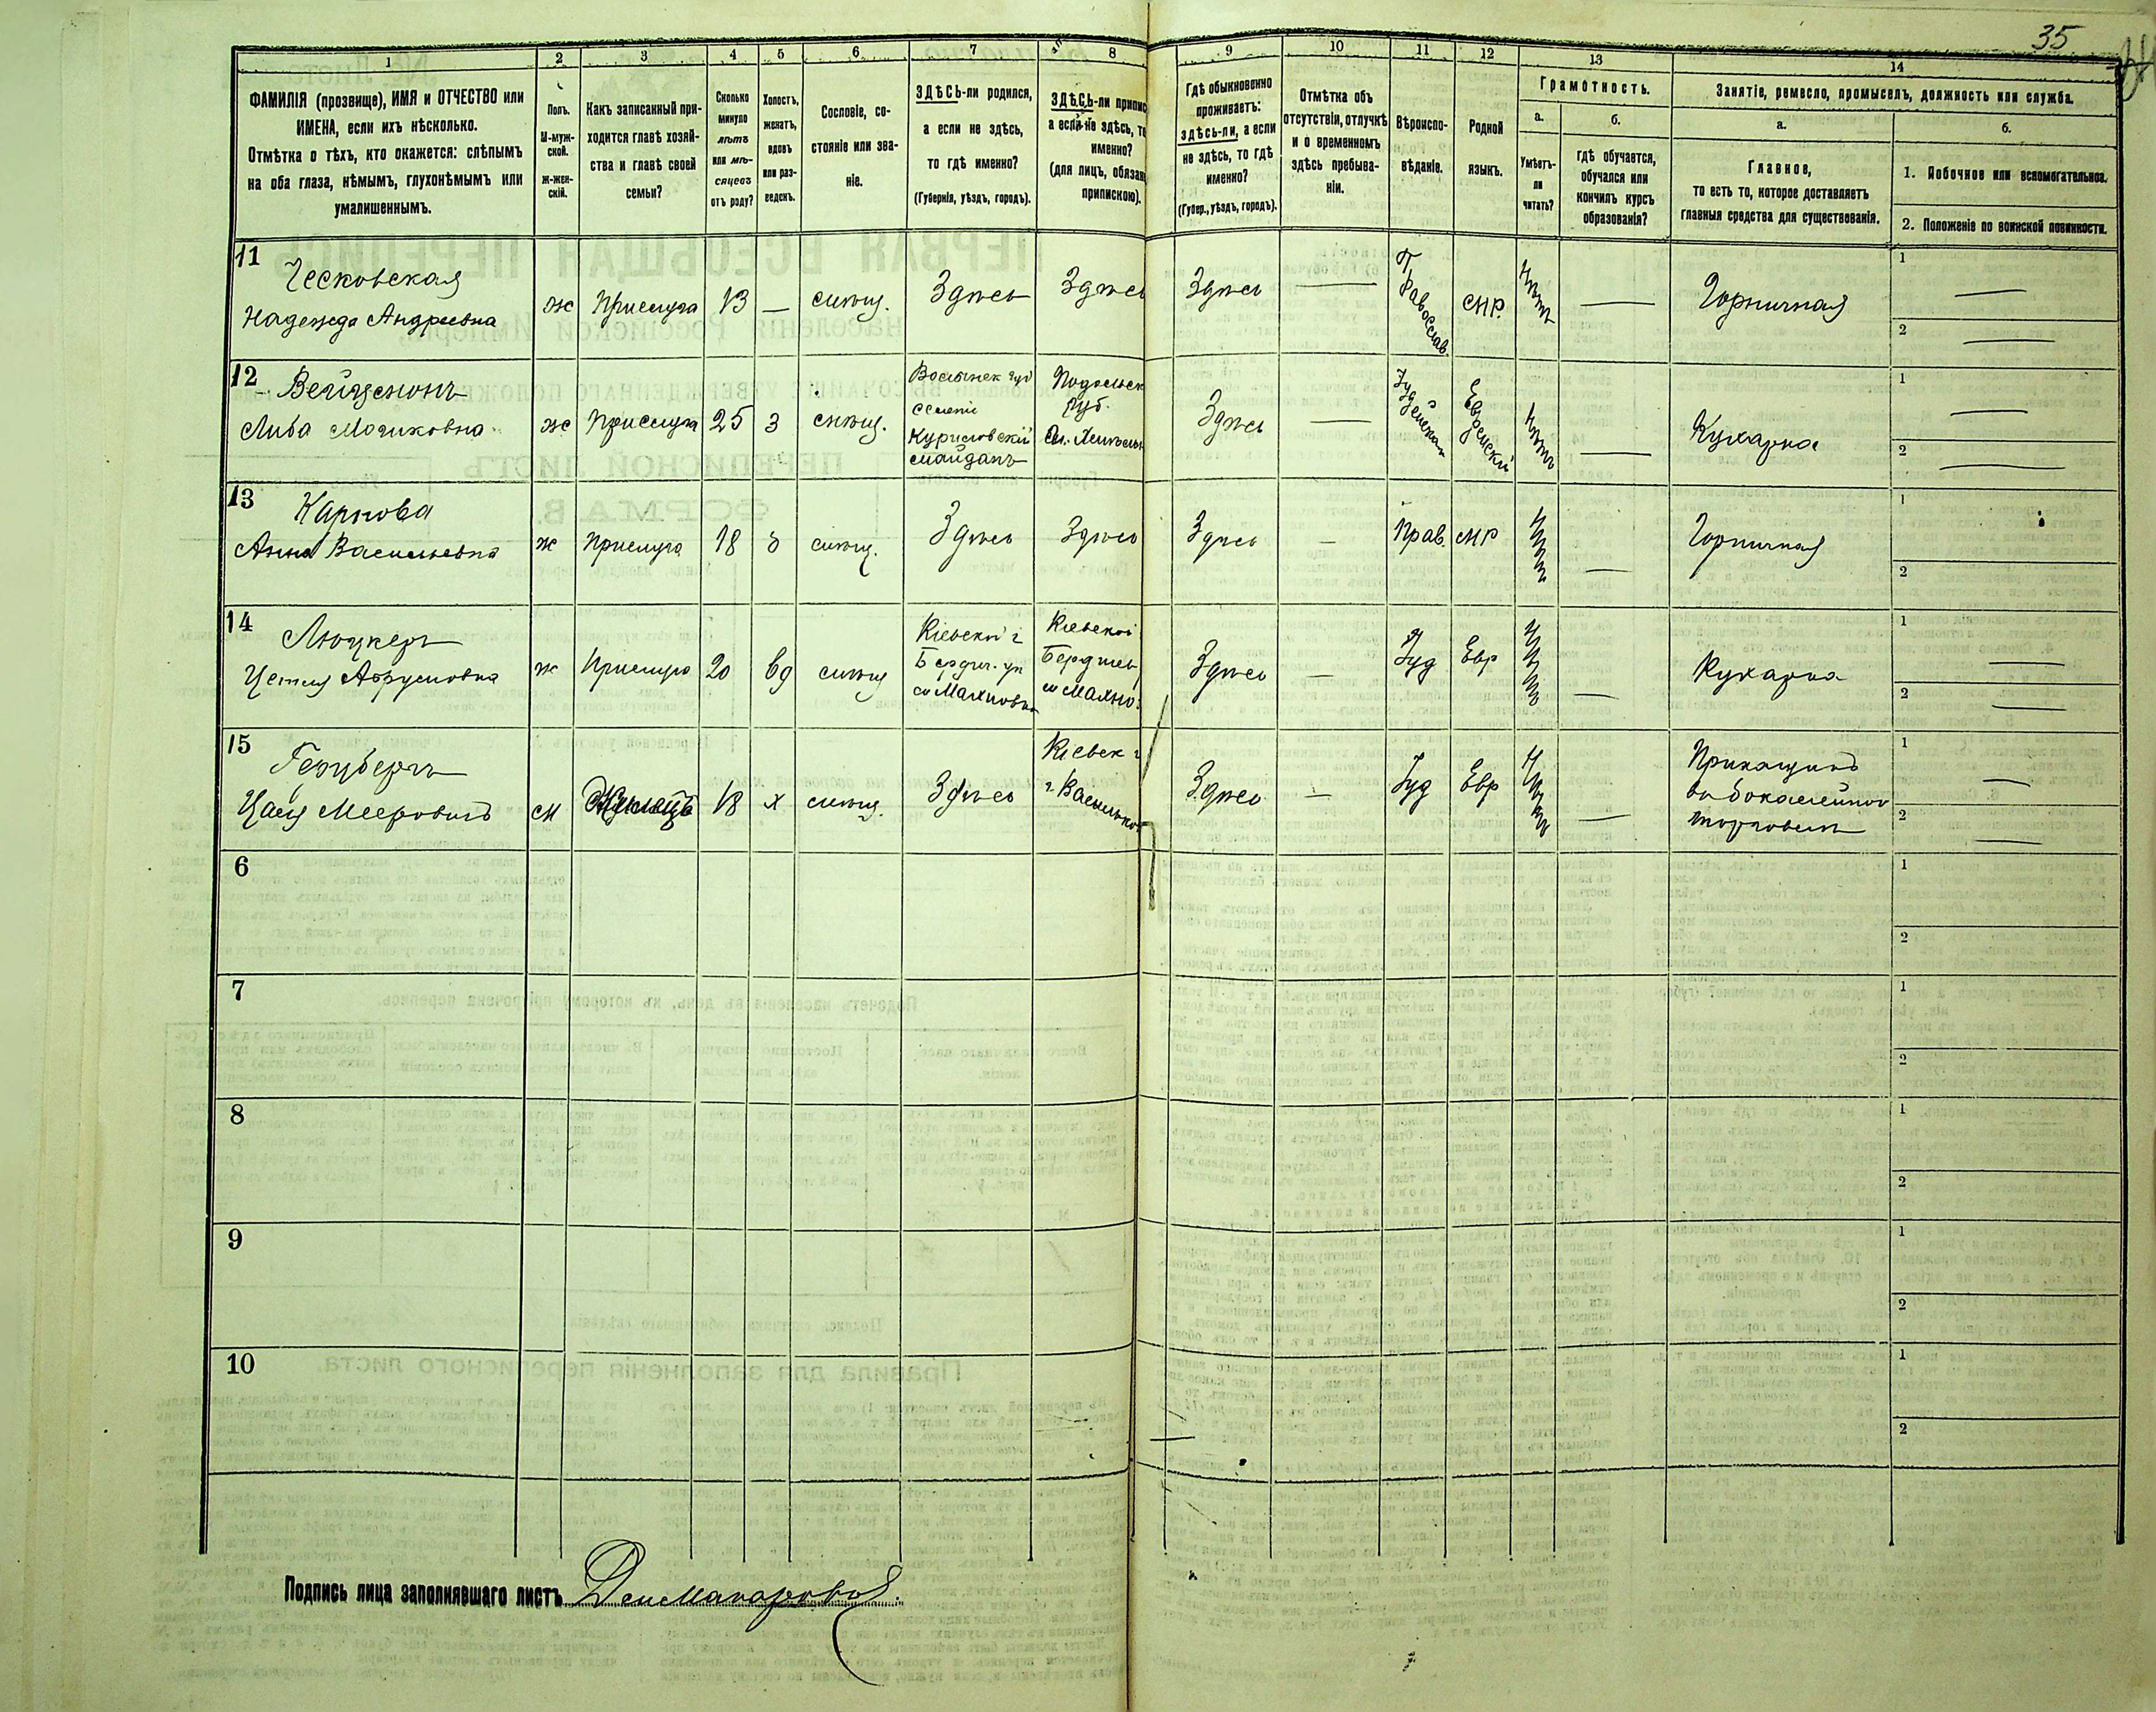 35
1 2 3 4 5 6 7 8 9 10 11 12 13 14
ФАМИЛІЯ (прозвище), ИМЯ и ОТЧЕСТВО или
ИМЕНА, если ихъ нѣсколько.
Отмѣтка о тѣхъ, кто окажется: слѣпымъ
на оба глаза, нѣмымъ, глухонѣмымъ или
умалишеннымъ.
Полъ.
М-муж-
ской.
Ж-жен-
скій.
Какъ записанный при-
ходится главѣ хозяй-
ства и главѣ своей
семьи?
Сколько
минуло
лѣтъ
или мѣ-
сяцевъ
отъ роду?
Холостъ,
женатъ,
вдовъ
или раз-
веденъ.
Сословіе, со-
стояніе или зва-
ніе.
ЗДѢСЬ-ли родился,
а если не здѣсь,
то гдѣ именно?
(Губернія, уѣздъ, городъ).
ЗДѢСЬ-ли припис
а если не здѣсь, то
именно?
(для лицъ, обязан
припискою).
Гдѣ обыкновенно
проживаетъ:
здѣсь-ли, а если
не здѣсь, то гдѣ
именно?
(Губер., уѣздъ, городъ).
Отмѣтка объ
отсутствіи, отлучкѣ
и о временномъ
здѣсь пребыва-
ніи.
Вѣроиспо-
вѣданіе.
Родной
языкъ.
Грамотность.
а.
Умѣетъ-
ли
читать?
б.
гдѣ обучается,
обучался или
кончилъ курсъ
образованія?
Занятіе, ремесло, промыселъ, должность или служба.
а.
Главное,
то есть то, которое доставляетъ
главныя средства для существованія.
б.
1. Побочное или вспомогательное.
2. Положеніе по воинской повинности.
11
Ческовская
Надежда Андреевна
ж Прислуга 13 — мѣщ. Здѣсь Здѣсь Здѣсь — Православ мр. Нѣтъ — Горничная
1 —
2 —
12
Вейцманъ
Либа Мошковна
ж Прислуга 25 З мѣщ.
Волынск губ
селеніе
Куриловскій
майданъ
Подольск
Губ.
Здѣсь — Іудейская Еврейскій Нѣтъ — Кухарка
1 —
2 —
13
Карпова
Анна Васильевна
ж Прислуга 18 З мѣщ. Здѣсь Здѣсь Здѣсь — Прав. мр Нѣтъ — Горничная
1
2
14
Люцкеръ
ж Прислуга 20 вд мѣщ
Кіевской г
Бердич. уѣ
м Махновка
Кіевской
Бердичев
м Махно
Здѣсь — Іуд Евр Нѣтъ — Кухарка
1 —
2 —
15
Мееровичъ
м Жилецъ 18 х мѣщ. Здѣсь
Кіевск г
г Васильков
Здѣсь — Іуд Евр Нѣтъ —
Прикащикъ
въ бокалейной
торговлѣ
1 —
2 —
6
1
2
7
1
2
8
1
2
9
1
2
10
1
2
Подпись лица заполнявшаго листъ